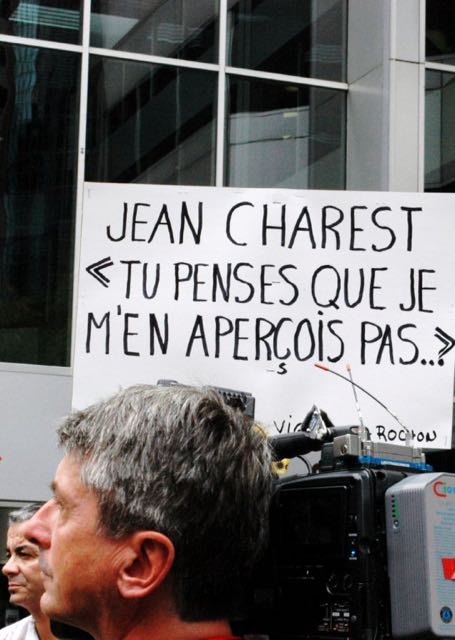 JEAN CHAREST
« TU PENSES QUE JE
M'EN APERÇOIS PAS...»
ROCHON